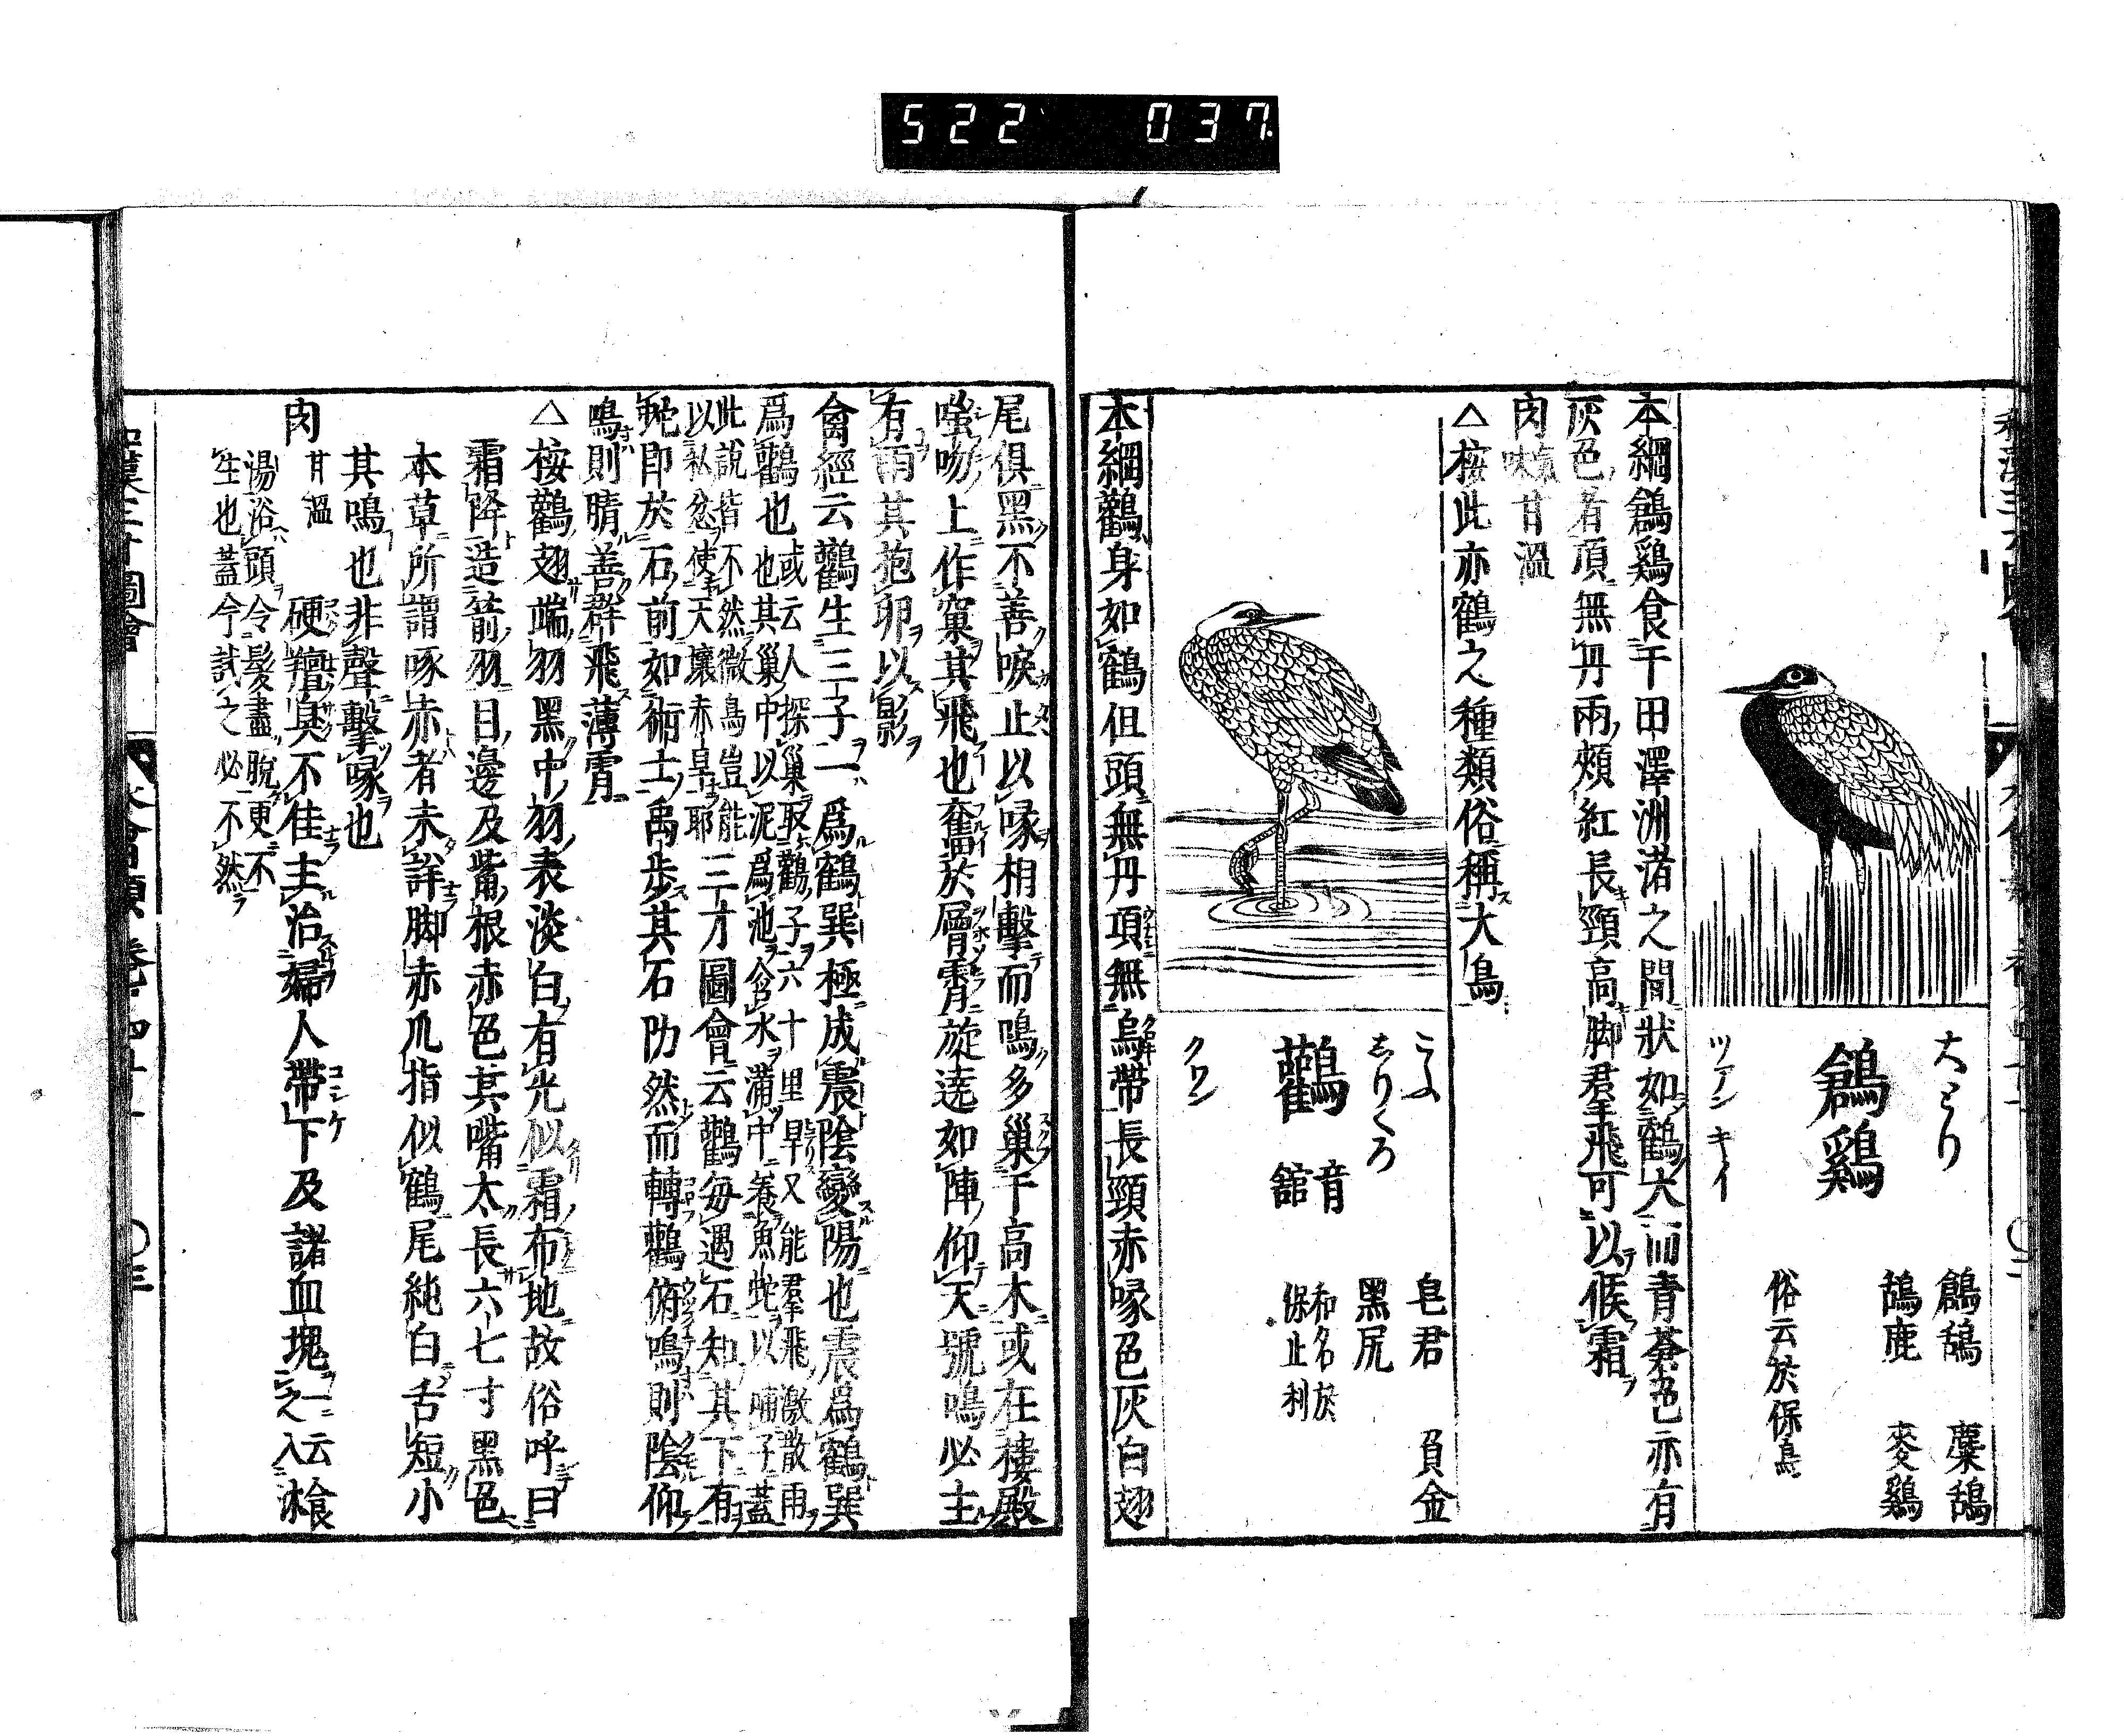 522 037
大とり
鶬鷄
ツアン キイ
鶬鴰 麋鴰
鴰鹿 麥鷄
俗云於保鳥
本綱鶬鷄食于田澤洲渚之間狀如鶴大而青蒼色亦有
灰色者頂無丹兩頰紅長頸高脚羣飛可以候霜
肉 氣味甘溫
△桉此亦鶴之種類俗稱大鳥
こふ
志りくろ
鸛 音舘
クワン
皂君 負金
黑尻
和名於
保止利
本綱鸛身如鶴但頭無丹項無烏帶長頸赤喙色灰白翅
尾俱黑不善唳止以喙相擊而鳴多巢于高木或在樓殿
吻上作窠其飛也奮於層霄旋遶如陣仰天號鳴必主
有雨其抱卵以影
禽經云鸛生三子一爲鶴巽極成震陰變陽也震爲鶴巽
爲鸛也
或云人探巢取鸛子六十里旱又能羣飛激散雨
也其巢中以泥爲池含水滿中養魚蛇以哺子蓋
此說皆不然微鳥豈能
以私忿使天壤赤旱耶
三才圖會云鸛每遇石知其下有
蛇即於石前如術士禹步其石阞然而轉鸛俯鳴則陰仰
鳴則晴善群飛薄霄
△桉鸛翅端羽黑中羽表淡白有光似霜布地故俗呼曰
霜降造箭羽目邊及觜根赤色其嘴太長六七寸黑色
本草所謂啄赤者未詳脚赤爪指似鶴尾純白舌短小
其鳴也非聲擊喙也
肉 甘溫 硬羶臭不佳主治婦人帶下及諸血塊
一云飡之入
湯浴頭令髮盡脫更不
生也蓋今試之必不然